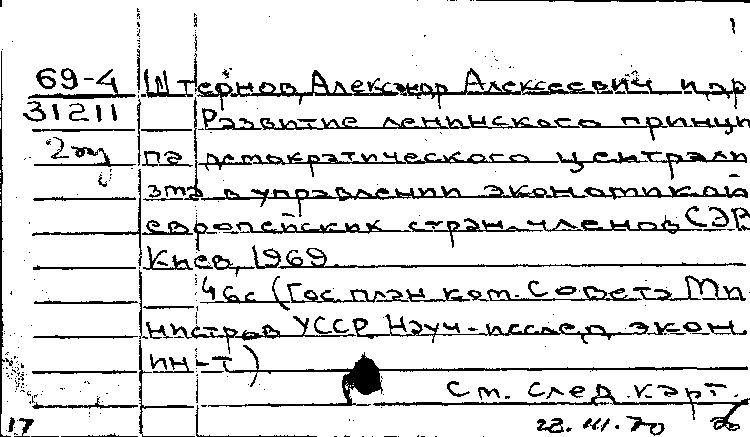 1
69-4 Штернов, Александр Алексеевич и др
31211 Развитие ленинского принци
2экз па демократического централи
зма в управлении экономикой
европейских стран-членов СЭВ
Киев, 1969.
46с (Гос. план. ком. Совета Ми-
нистров УССР. Науч-исслед. экон.
ин-т)
См. след. карт.
17 23.III.70